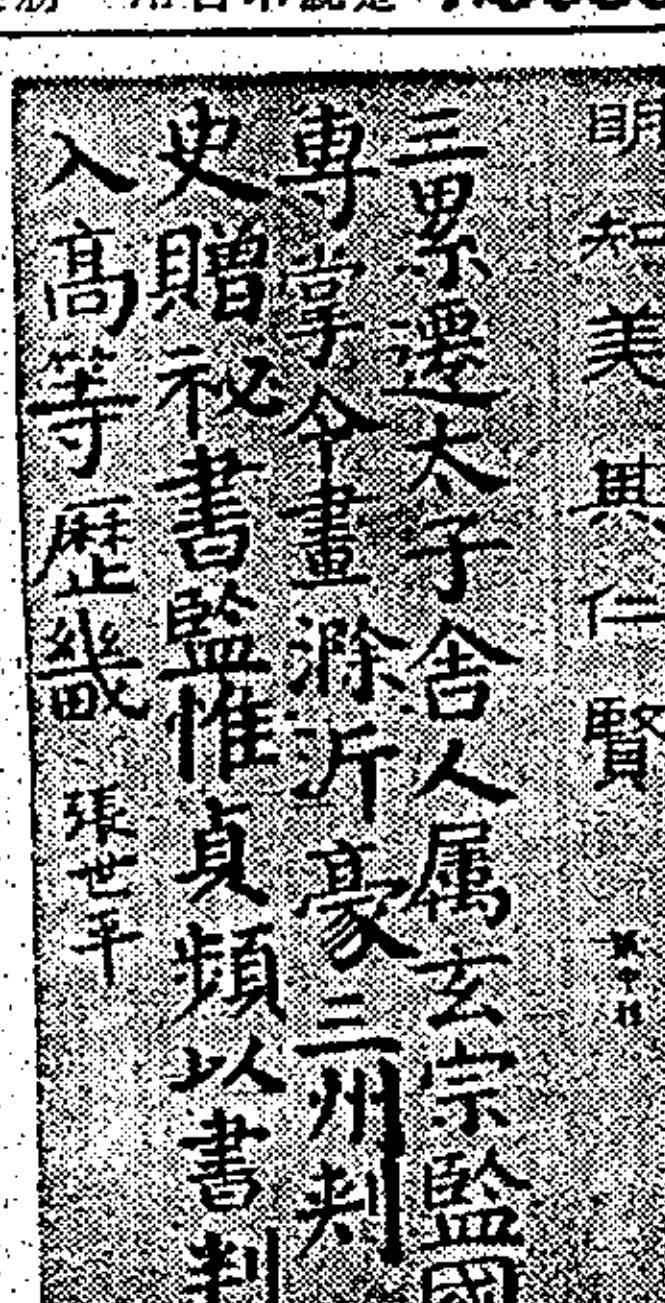 明知美興仁賢
三累遷太子舍人属玄宗監國
専掌令畫滁沂豪三州刾
史贈祕書監惟貞頻以書判
入髙等歷畿
張世平